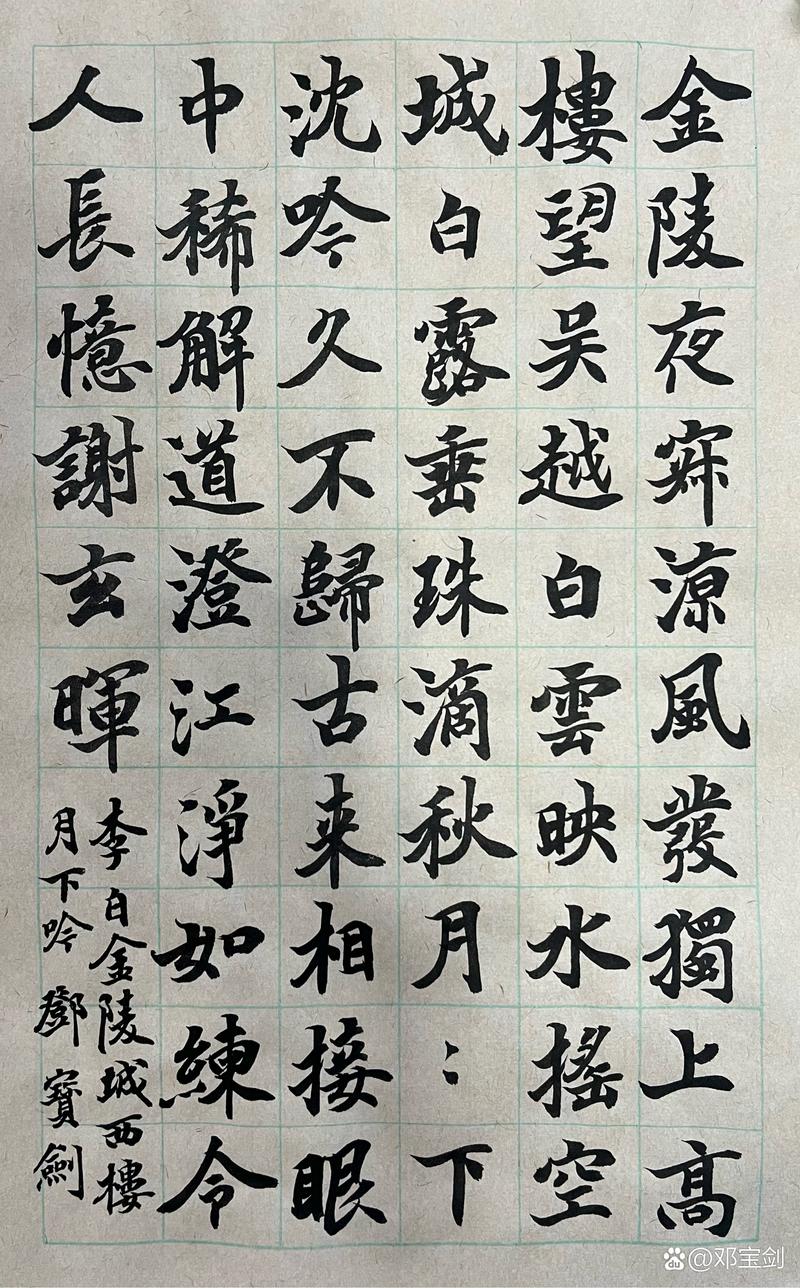 金陵夜寂涼風發獨上高
樓望吴越白雲映水搖空
城白露垂珠滴秋月：下
沈吟久不歸古来相接眼
中稀解道澄江淨如練令
人長憶謝玄暉
李白金陵城西樓
月下吟 鄧寶劍
@邓宝剑